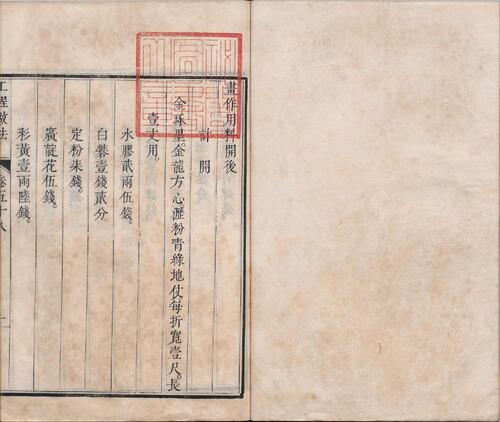 畫作用料開後
計開
金琢墨金龍方心瀝粉青綠地仗。每折寬壹尺。長
壹丈用。
水膠貳兩伍錢。
白礬壹錢貳分
定粉柒錢。
廣靛花伍錢。
彩黃壹兩陸錢。
工程做法
卷五十八